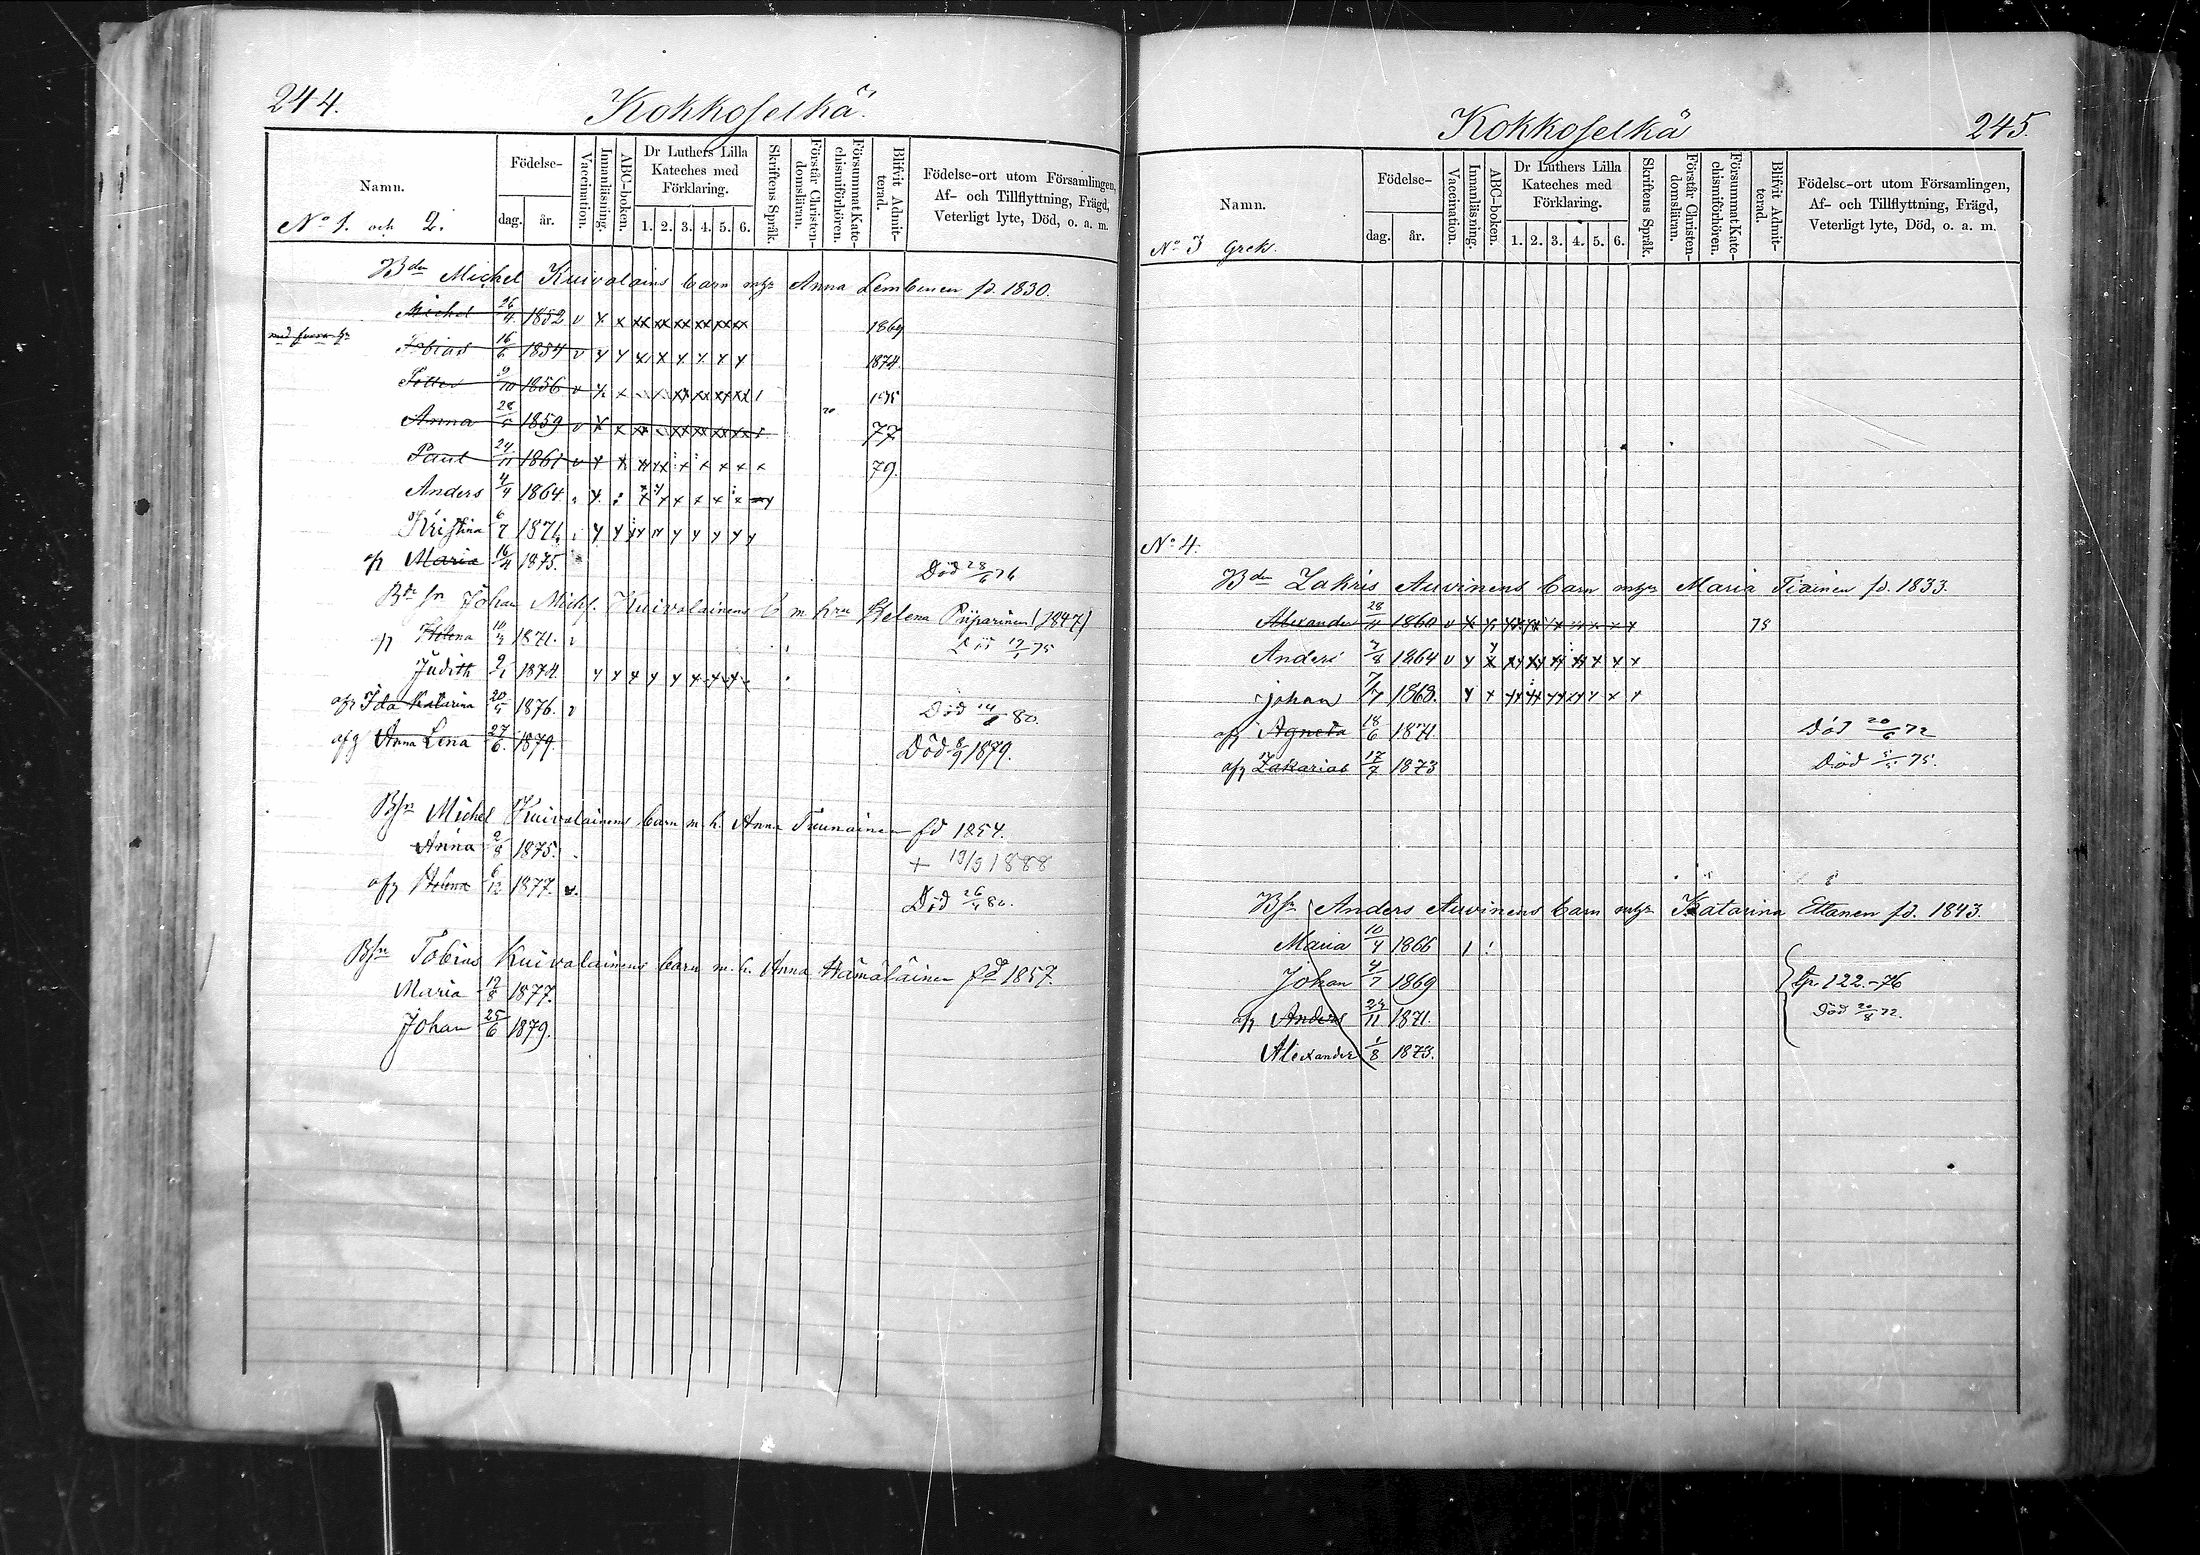 244.
Kokkoselkä.
Namn.
Födelse-
dag. år.
Vaccination.
Innanläsning.
ABC-boken.
Dr Luthers Lilla Kateches med Förklaring.
1. 2. 3. 4. 5. 6.
Skriftens Språk.
Förstår Christendomsläran.
Försummat Katechismiförhören.
Blifvit Admitterad.
Födelse-ort utom Församlingen,
Af- och Tillflyttning, Frägd,
Veterligt lyte, Död, o. a. m.
No 1. och 2.
Bdn Michel Kuivalains barn m hr Anna Lembinen fd. 1830.
Michel 26/4 1852 v x x xx xx xx xx xx xx 1869
Tobias 16/6 1854 v x x x x x x x x 1874.
Petter 9/10 1856 v x x
Anna 28/5 1859 v x x 77
Paul 24/11 1861 v x x 79.
Anders 4/4 1864
Kristina 6/7 1871
af Maria 16/4 1875. Död 28/6 76
Bdn sn Johan Michs. Kuivalainens b m hru Helena Piiparinen (1847)
af Helena 10/3 1871. v
Judith 2/1 1874.
afg Ida Katarina 20/5 1876. v Död 80.
afg Anna Lena 27/6 1879. Död 8/9 1879.
Bsn Michel Kuivalainens barn m. h. Anna Tuunainen fd 1854.
Anna 2/8 1875. + 19/9 1888
afg Helena 6/12 1877. v. Död 26/4 80.
Bsn Tobias Kuivalainens barn m. h. Anna Hämäläinen fd 1857.
Maria 12/8 1877.
Johan 25/6 1879.
Kokkoselkä
245.
Namn.
Födelse-
dag. år.
Vaccination.
Innanläsning.
ABC-boken.
Dr Luthers Lilla Kateches med Förklaring.
1. 2. 3. 4. 5. 6.
Skriftens Språk.
Förstår Christendomsläran.
Försummat Katechismiförhören.
Blifvit Admitterad.
Födelse-ort utom Församlingen,
Af- och Tillflyttning, Frägd,
Veterligt lyte, Död, o. a. m.
No 3 Grek.
No 4.
Bdn Zakris Auvinens barn m hr Maria Tiainen fd. 1833.
Alexander 28/11 1860 v 78
Anders 2/8 1864 v
Johan 7/7 1868.
afg Agneta 18/6 1871 Död 20/6 72
afg Zakarias 17/7 1873 Död 75.
Bsn Anders Auvinens barn m hr Katarina Ettanen fd. 1843.
Maria 10/4 1866
Johan 4/7 1869 tp. 122.-76
afg Anders 24/11 1871. Död 20/8 72.
Alexander 1/8 1873.